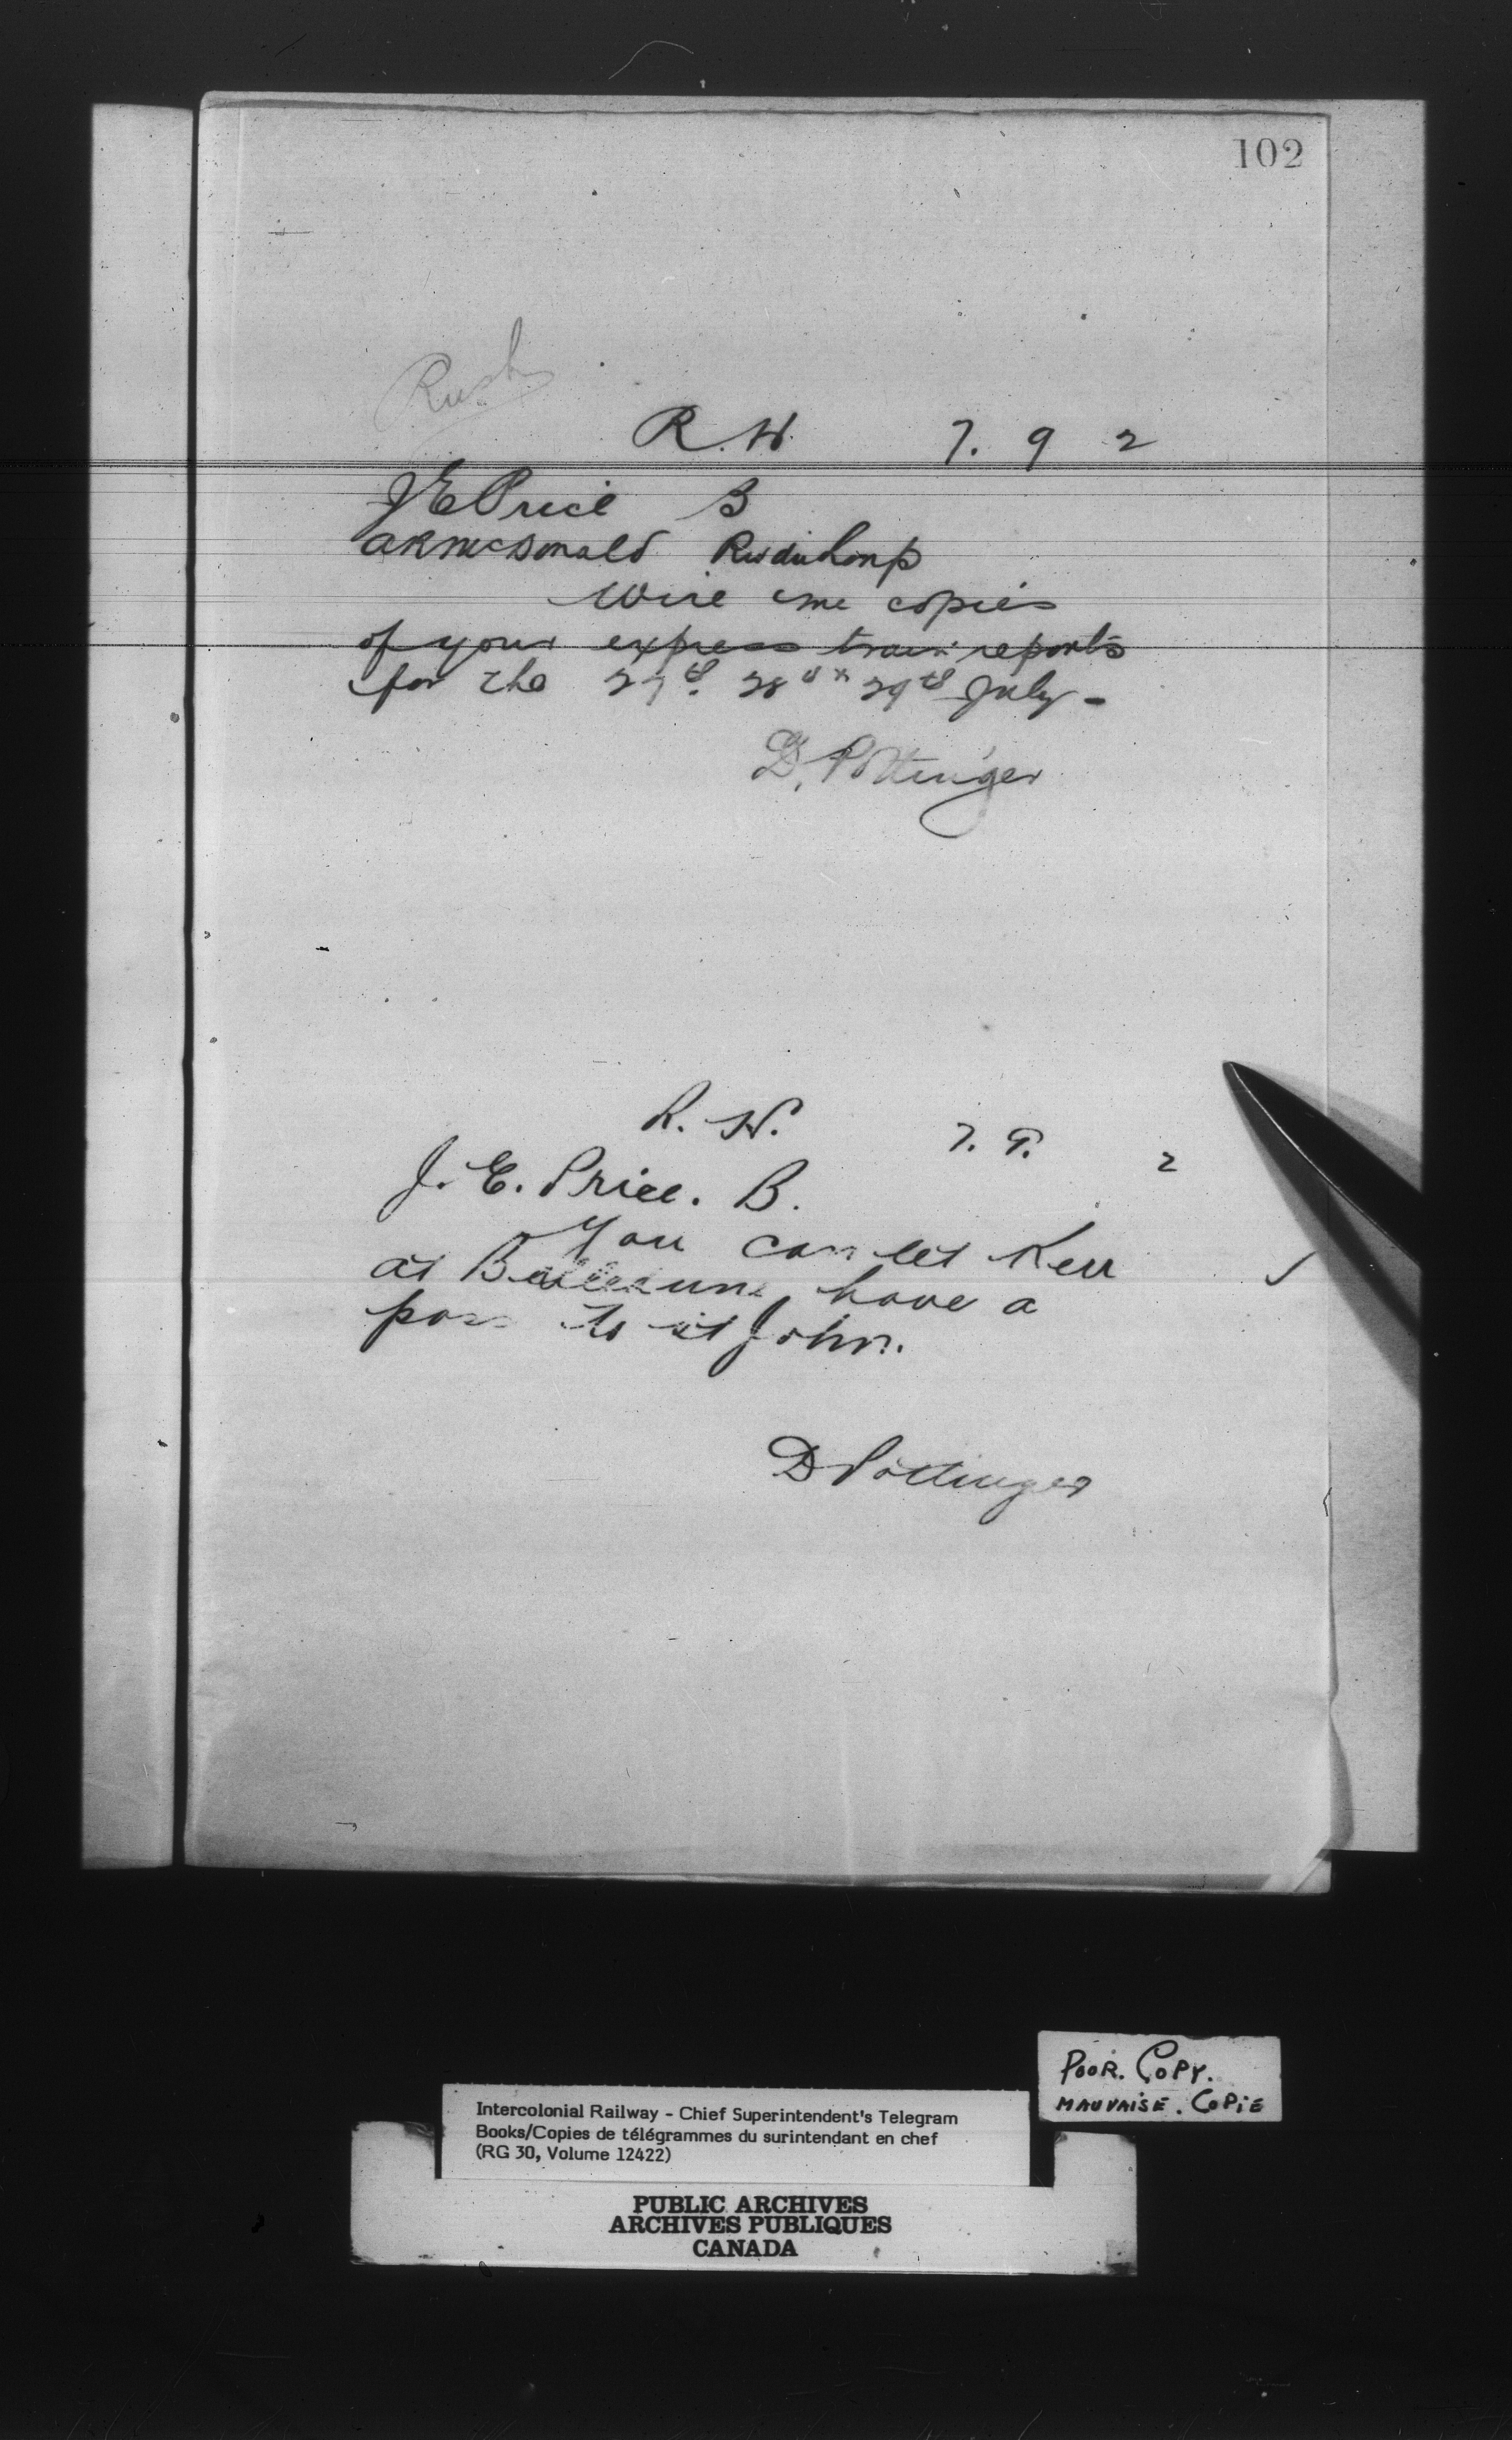 102
Rush
R. W. 7. 9 2
J E Price B
A R McDonald Riv du Loup
Wire me copies
of your express train reports
for the 27th. 28th & 29th July -
D. Pottinger
R. W. 7. 9. 2
J. E. Price. B.
You can let Kerr
at have a
pass to St John.
D Pottinger
POOR. COPY.
MAUVAISE. COPIE
Intercolonial Railway - Chief Superintendent's Telegram
Books/Copies de télégrammes du surintendant en chef
(RG 30, Volume 12422)
PUBLIC ARCHIVES
ARCHIVES PUBLIQUES
CANADA